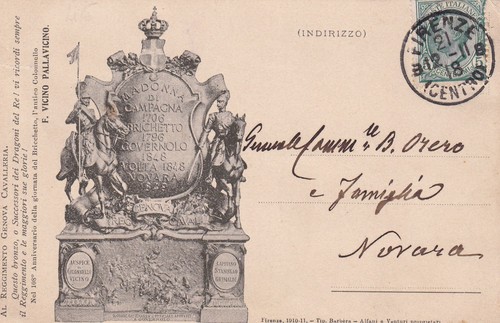 AL REGGIMENTO GENOVA CAVALLERIA.
Questo bronzo, o Successori dei Dragoni del Re! vi ricordi sempre
il Reggimento e le maggiori sue glorie!
Nel 108° Anniversario della giornata del Bricchetto, l'antico Colonnello
F. VICINO PALLAVICINO.
MADONNA
DI
CAMPAGNA
1706
BRICHETTO
1796
GOVERNOLO
1848
VOLTA 1848
AUSPICE
IL
COLONNELLO
VICINO
(INDIRIZZO)
FIRENZE
21
12-11
18
(CENTRO)
Generale Comm.re B. Orero
e Famiglia
Novara
Firenze, 1910-11. - Tip. Barbèra - Alfani e Venturi proprietari.